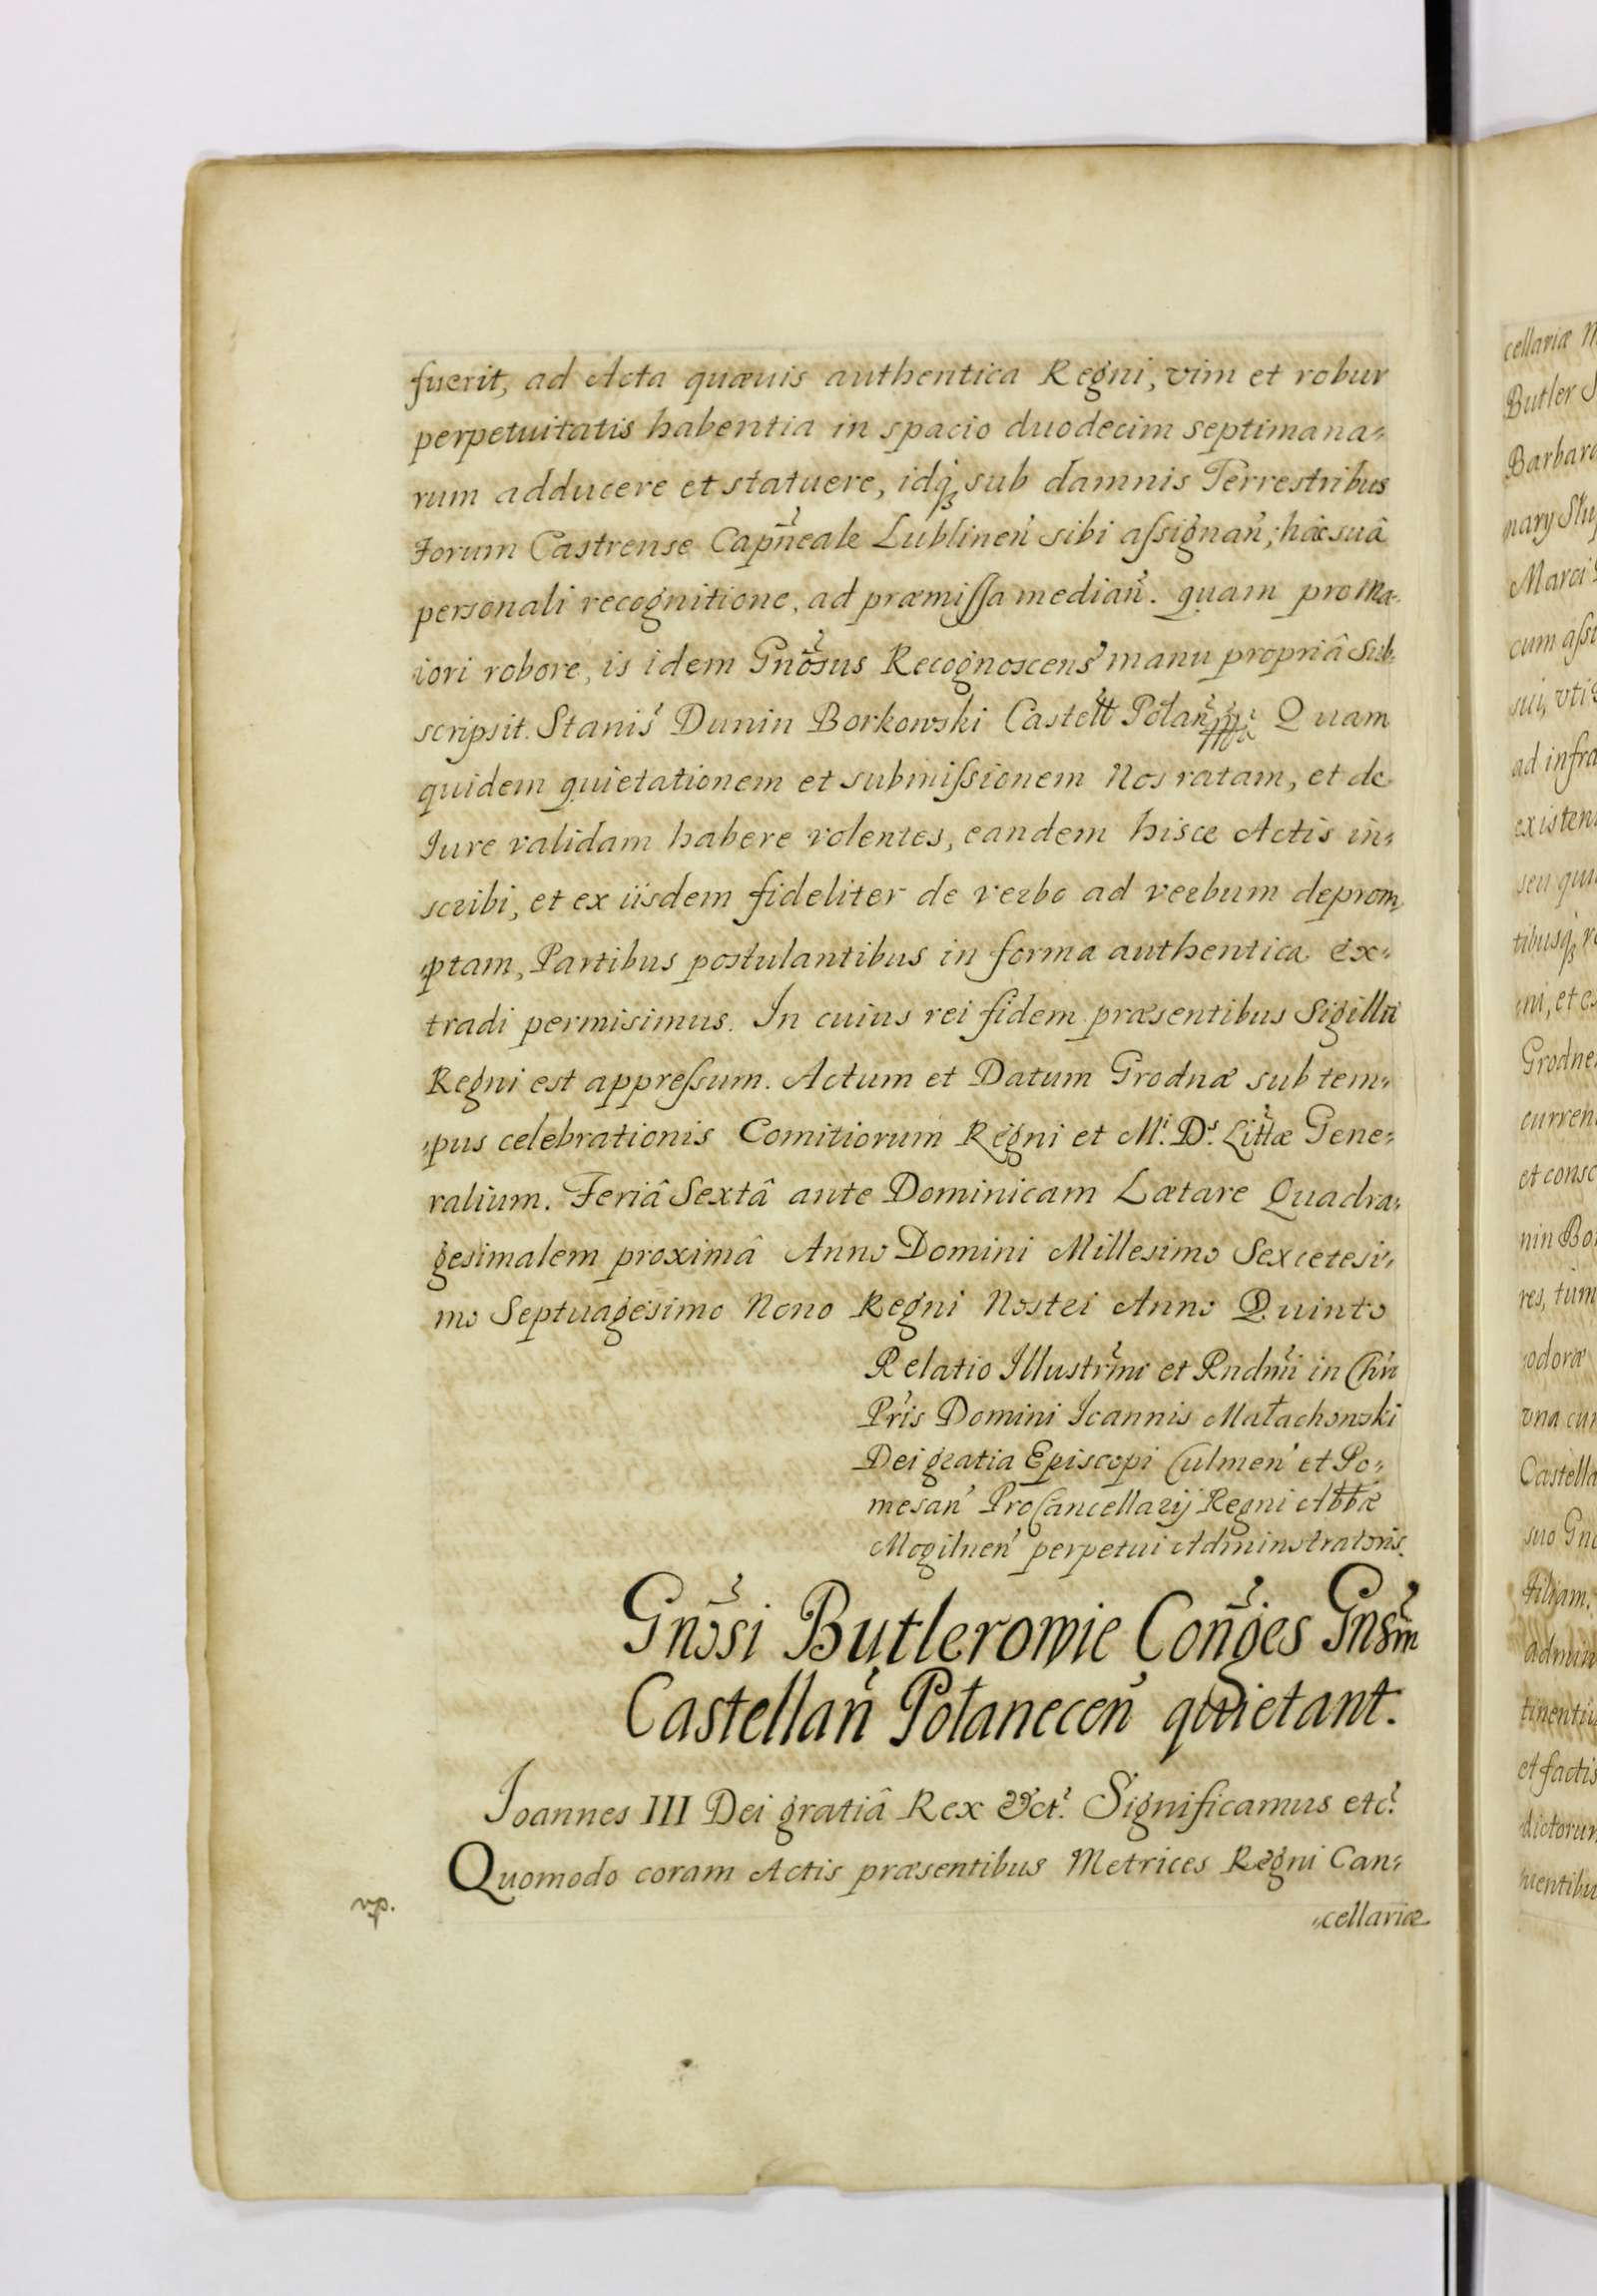 fuerit, ad Acta quævis authentica Regni, vim et robur
perpetuitatis habentia in spacio duodecim septimana=
rum adducere et statuere, idq; sub damnis Terrestribus
Forum Castrense Capn̄eale Lublinen̓ sibi aſsignan̓; hac suâ
personali recognitione, ad præmiſſa median̓. quam pro Ma=
iori robore, is idem Gnōsus Recognoscens manu propriâ sub=
scripsit. Stanis̓ Dunin Borkowski Castełł Połan̓ mpa Quam
quidem quietationem et submiſsionem Nos ratam, et de
Iure validam habere volentes, eandem hisce Actis in=
scribi, et ex iisdem fideliter de verbo ad verbum deprom=
=ptam, Partibus postulantibus in forma authentica ex=
tradi permisimus. In cuius rei fidem præsentibus Sigillū
Regni est appreſsum. Actum et Datum Grodnæ sub tem=
=pus celebrationis Comitiorum Regni et M. D. Littæ Gene=
ralium. Feriâ Sextâ ante Dominicam Lætare Quadra=
gesimalem proximâ Anno Domini Millesimo Sexcetesi=
mo Septuagesimo Nono Regni Nostri Anno Quinto
Relatio Illustrmi et Rndmi in Chrō
Pris Domini Ioannis Małachowski
Dei gratia Episcopi Culmen̓ et Po=
mesan̓ ProCancellarij Regni Abbæ
Mogilnen̓ perpetui Adminstratoris.
Gnōsi Butlerowie Con̄ges Gnōsm
Castellan̓ Połanecen̓ quietant.
Ioannes III Dei gratiâ Rex &ct. Significamus etc.
Quomodo coram Actis præsentibus Metrices Regni Can=
=cellariæ
cellariæ
Butler
Barbara
Marci
cum aſsi
sui, uti
ad infra
existen
seu qui
tibusq;
ni, et
Grodne
curren
et consc
nin Bo
res, tum
odoræ
vna cu
Castella
suo Gn
Filiam.
admin
tinenti
et factis
dictorum
uentibu